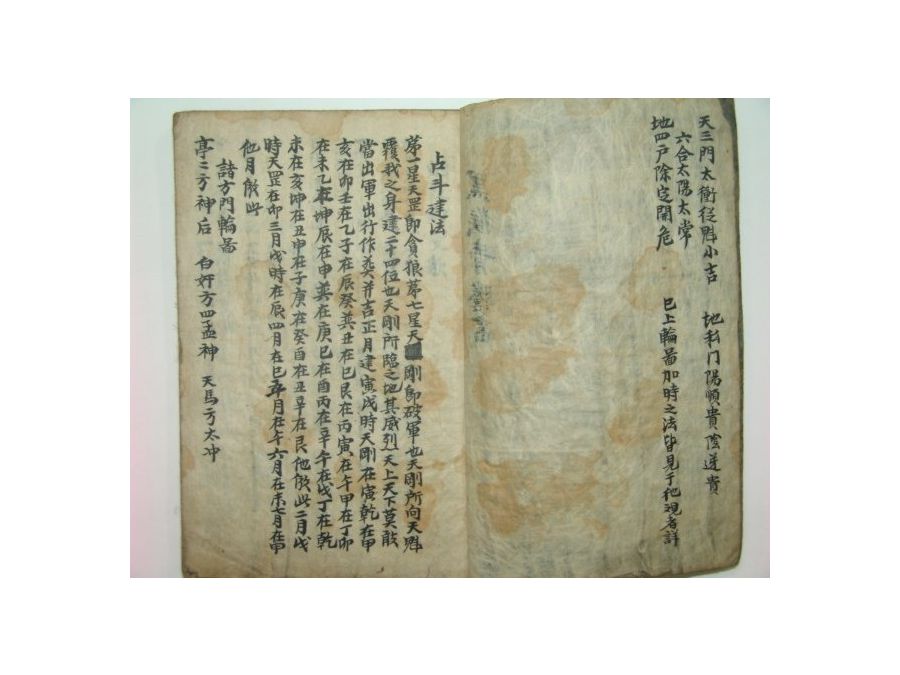 天三門太衝從魁小吉 地私门陽順貴陰逆貴
六合太陽太常
地四户除定開危 已上輪啚加時之法皆見于他現者詳
占斗建法
第一星天罡即貪狼第七星天剛即破軍也天剛所向天魁
覆我之身建二十四位也天剛所臨之地其威烈天上天下莫敢
當出軍出行作葬并吉正月建寅戌時天剛在寅乾在甲
亥在卯壬在乙子在辰癸巽丑在巳艮在丙寅在午甲在丁卯
在未乙在坤辰在申巽在庚巳在酉丙在辛午在戌丁在乾
未在亥坤在丑申在子庚在癸酉在丑辛在艮他倣此二月戌
時天罡在卯三月戌時在辰四月在巳五月在午六月在未七月在申
他月倣此
諸方門輪啚
亭亭方神后 白奸方四孟神 天馬方太冲